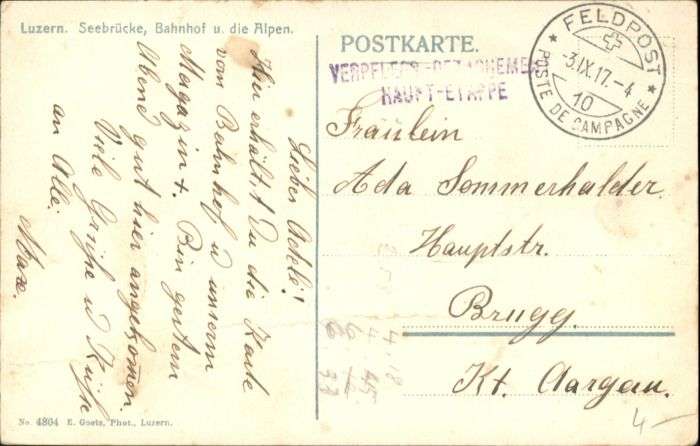 Luzern. Seebrücke, Bahnhof u. die Alpen.
POSTKARTE.
VERPFLEGS-DETACHEMEN
HAUPT-ETAPPE
FELDPOST
-3.IX.17.-4
10
POSTE DE CAMPAGNE
Fräulein
Ada Sommerhalder.
Hauptstr.
Brugg.
Kt. Aargau.
Liebes
Hier erhältst Du die Karte
vom Bahnhof u unserm
Magazin +. Bin gestern
Abend gut hier angekommen.
Viele Grüsse u Küsse
an Alle.
Max.
No. 4864 E. Goetz, Phot., Luzern.
4-